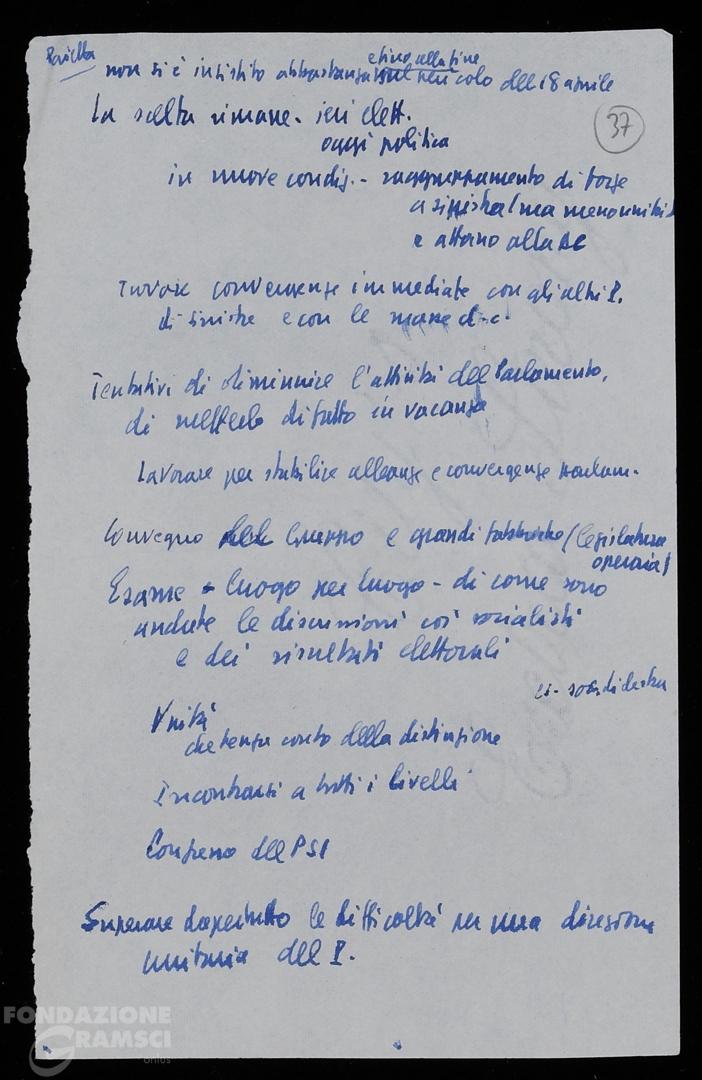 Pajetta
non si è insistito abbastanza e sino alla fine sul pericolo del 18 aprile
37
La scelta rimane. ieri elett.
oggi politica
in nuove condiz. - raggruppamento di forze
a sinistra (ma meno unità)
e attorno alla DC
Trovare convergenze immediate con gli altri P.
di sinistra e con le masse d.c.
Tentativi di diminuire l'attività del Parlamento,
di metterlo di fatto in vacanza
Lavorare per stabilire alleanze e convergenze parlam.
Convegno Gruppo e grandi fabbriche (legislatura
operaia)
Esame - luogo per luogo - di come sono
andate le discussioni coi socialisti
e dei risultati elettorali
es. soc. di destra
Unità
che tenga conto della distinzione
Incontrarsi a tutti i livelli
Congresso del PSI
Superare dapertutto le difficoltà per una direzione
unitaria del P.
FONDAZIONE
GRAMSCI
onlus